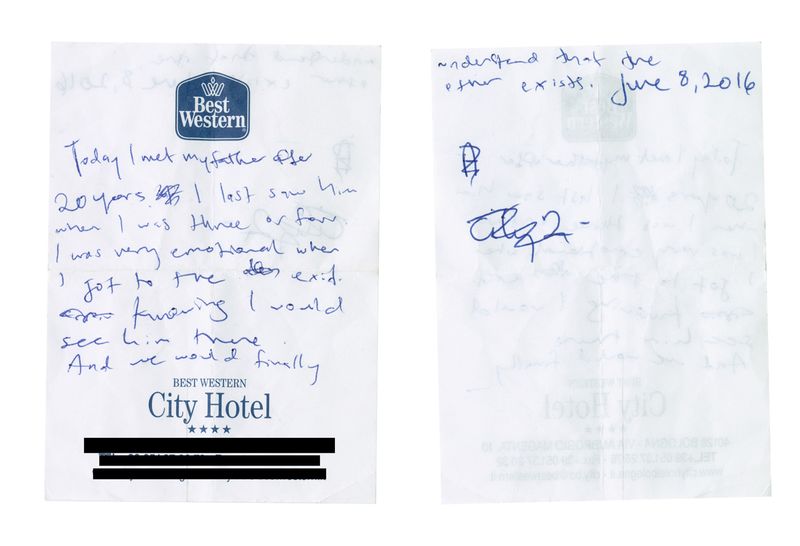 Best
Western
Today I met my father after
20 years. I last saw him
when I was three or four
I was very emotional when
I got to the exit.
knowing I would
see him there.
And we would finally
BEST WESTERN
City Hotel
understand that the
other exists. June 8, 2016